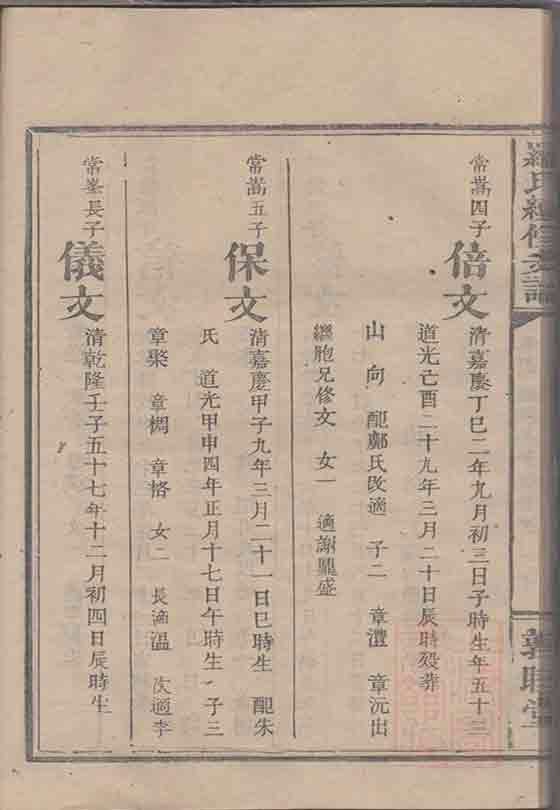 羅氏續修支譜
常嵩四子
倍文
清嘉慶丁巳二年九月初三日子時生年五十三
道光己酉二十九年三月二十日辰時歿葬
山向 配鄭氏改適 子二 章澧 章沅出
繼胞兄修文 女一 適謝龍盛
常嵩五子
保文
清嘉慶甲子九年三月二十一日巳時生 配朱
氏 道光甲申四年正月十七日午時生 子三
章棸 章榈 章格 女二 長適溫 次適李
常峯長子
儀文
清乾隆壬子五十七年十二月初四日辰時生